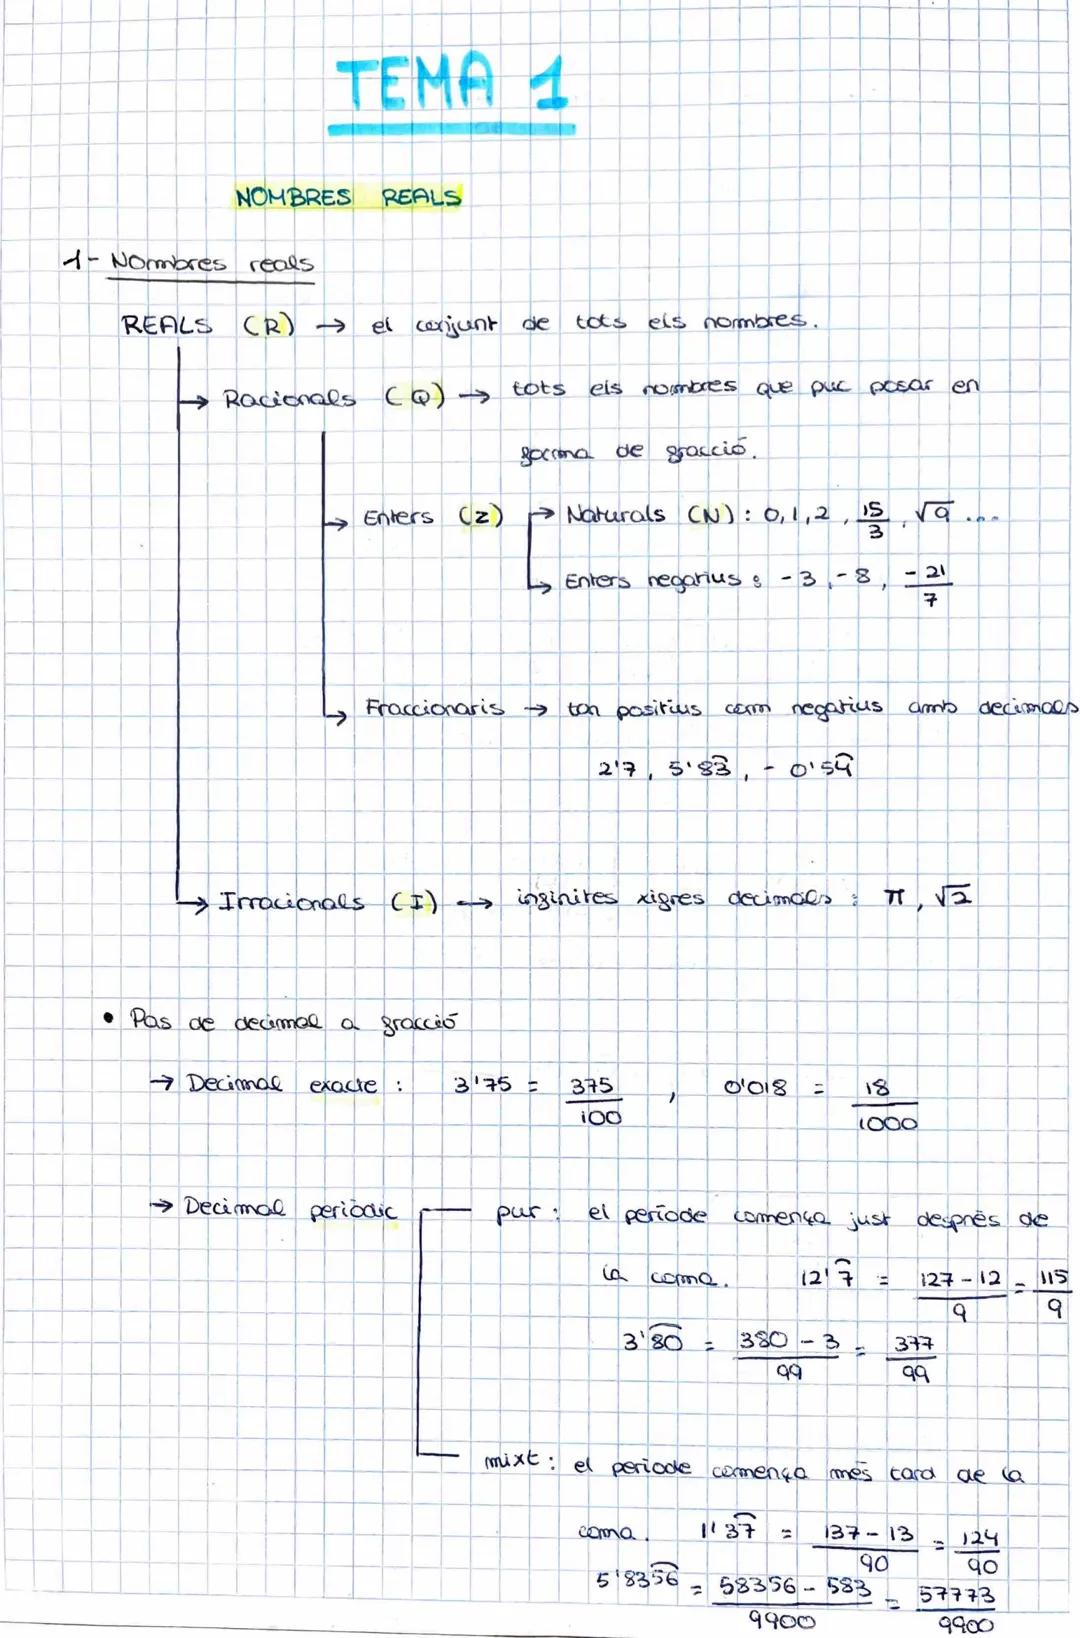 TEMA 1
NOMBRES REALS
1- Nombres reals
REALS (R) → el conjunt de tots els nombres.
→ Racionals (Q) → tots els nombres que puc posar en
forma de fracció.
→ Enters (Z) → Naturals (N) : 0, 1, 2, 15/3, √9 ...
→ Enters negatius : -3, -8, -21/7
→ Fraccionaris → tan positius com negatius amb decimals
2'7, 5'83̑, - 0'54̑
→ Irracionals (I) → infinites xifres decimals : π, √2
• Pas de decimal a fracció
→ Decimal exacte : 3'75 = 375/100 , 0'018 = 18/1000
→ Decimal periòdic pur : el període comença just desprès de
la coma. 12'7̑ = 127 - 12/9 = 115/9
3'8͡0 = 380 - 3/99 = 377/99
mixt : el periode comença més tard de la
coma. 1'37̑ = 137 - 13/90 = 124/90
5'835͡6 = 58356 - 583/9900 = 57773/9900